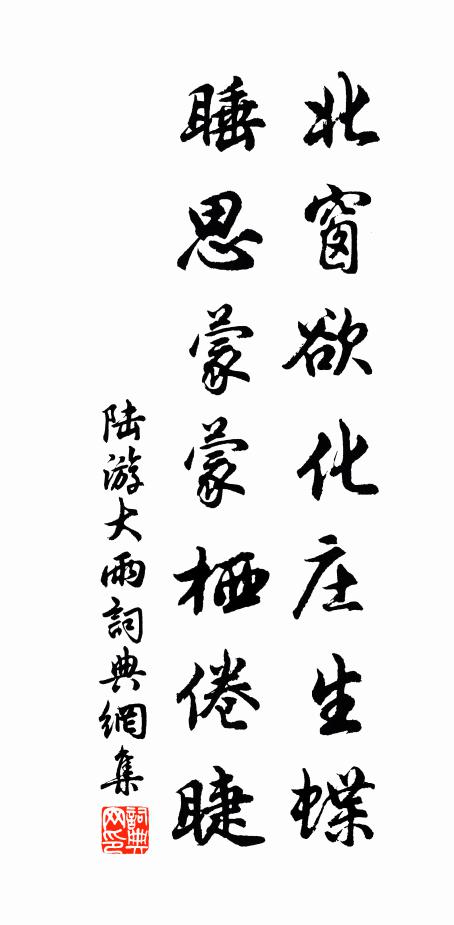 北窗欲化庄生蝶
睡思蒙蒙栖倦睫
陆游大雨詞典網集
詞典网印